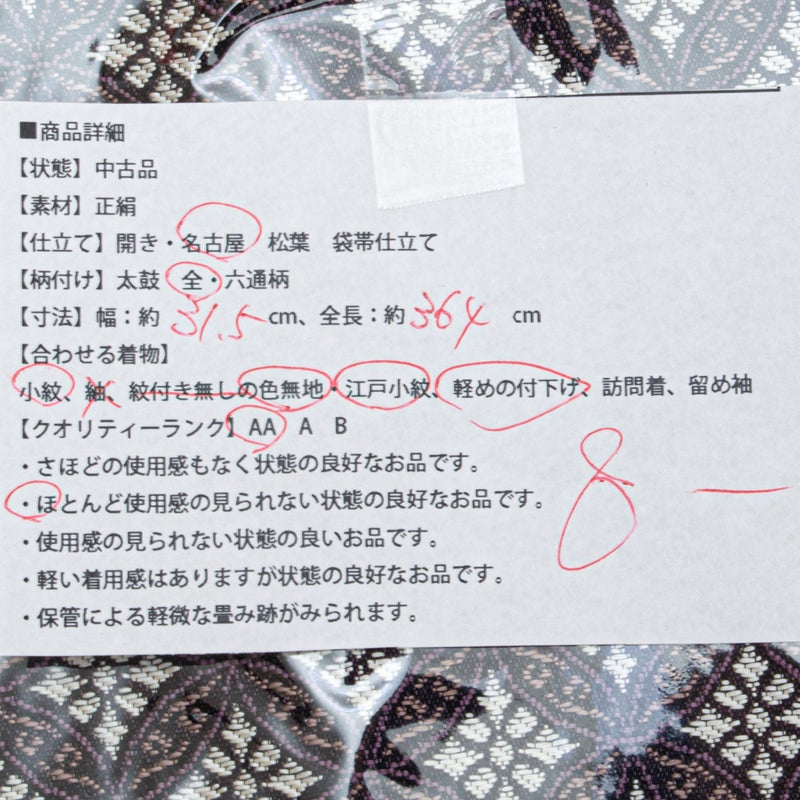 ■商品詳細
【状態】中古品
【素材】正絹
【仕立て】開き・名古屋　松葉　袋帯仕立て
【柄付け】太鼓　全・六通柄
【寸法】幅：約 31.5 cm、全長：約 364 cm
【合わせる着物】
小紋、紬、紋付き無しの色無地・江戸小紋、軽めの付下げ、訪問着、留め袖
【クオリティーランク】AA　A　B
・さほどの使用感もなく状態の良好なお品です。
・ほとんど使用感の見られない状態の良好なお品です。
・使用感の見られない状態の良いお品です。
・軽い着用感はありますが状態の良好なお品です。
・保管による軽微な畳み跡がみられます。
8 —